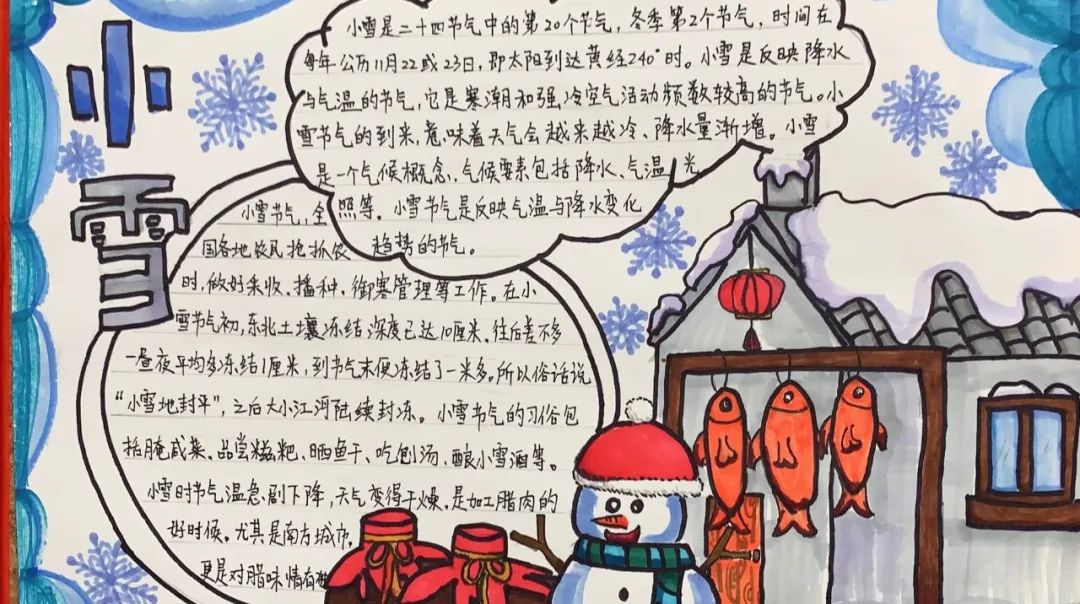 小雪
小雪是二十四节气中的第20个节气，冬季第2个节气，时间在
每年公历11月22或23日，即太阳到达黄经240°时。小雪是反映降水
与气温的节气，它是寒潮和强冷空气活动频数较高的节气。小
雪节气的到来，意味着天气会越来越冷、降水量渐增。小雪
是一个气候概念，气候要素包括降水、气温，光
照等。小雪节气是反映气温与降水变化
趋势的节气。
小雪节气，全
国各地农民抢抓农
时，做好采收、播种，御寒管理等工作。在小
雪节气初，东北土壤冻结深度已达10厘米，往后差不多
一昼夜平均多冻结1厘米，到节气末便冻结了一米多。所以俗话说
“小雪地封平”，之后大小江河陆续封冻。小雪节气的习俗包
括腌咸菜、品尝糍粑、晒鱼干、吃刨汤、酿小雪酒等。
小雪时节气温急剧下降，天气变得干燥，是加工腊肉的
好时候。尤其是南方城市，
更是对腊味情有